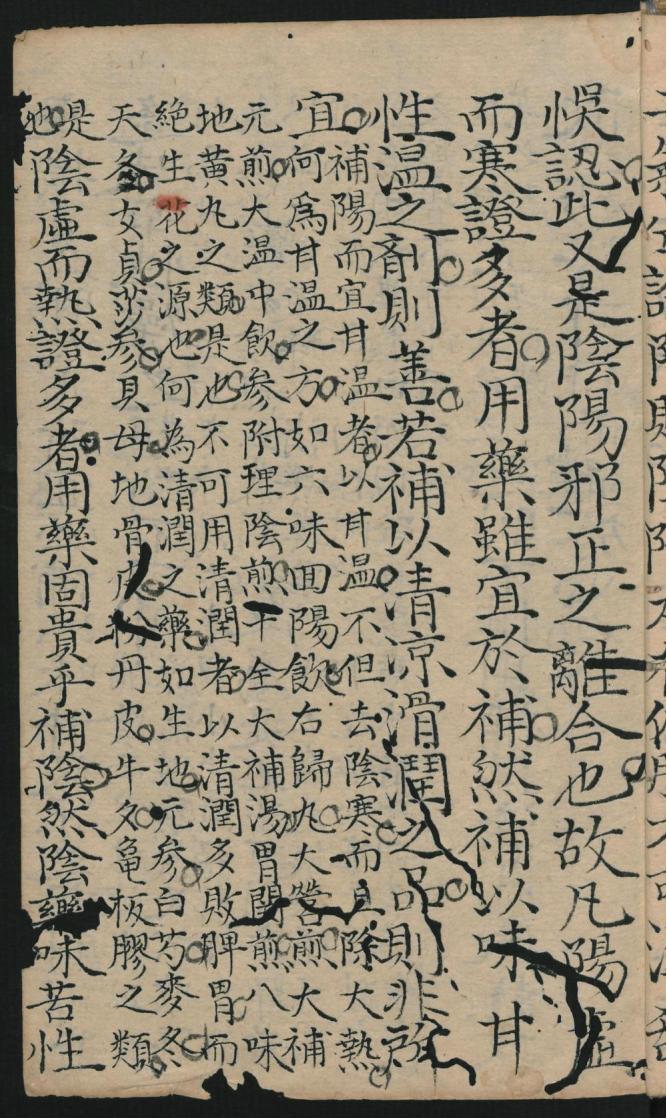 悞認此又是陰陽邪正之離合也故凡陽虛
而寒證多者用藥雖宜於補然補以味甘
性温之劑則善若補以清凉滑潤之品則非所
宜何爲甘温之方如六味回陽飲右歸丸大營煎大補
補陽而宜甘温者以甘温不但去陰寒而且除大熱
元煎大温中飲参附理陰煎十全大補湯胃関煎八味
地黄丸之類是也不可用清潤者以清潤多敗脾胃而
絶生花之源也何為清潤之藥如生地元参白芍麥冬
天冬女貞莎参貝母地骨皮粉丹皮牛夕龜板膠之類
是也
陰虛而熱證多者用藥固貴乎補陰然陰藥味苦性